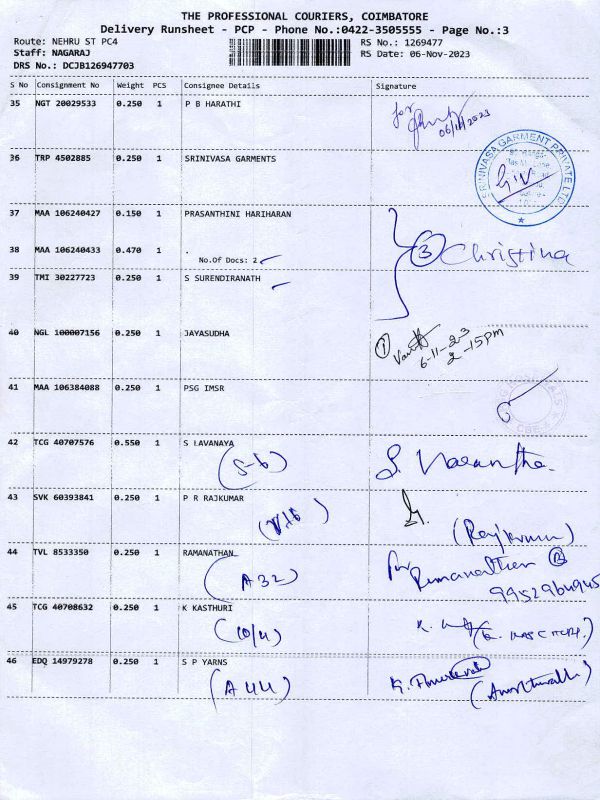 THE PROFESSIONAL COURIERS, COIMBATORE
Delivery Runsheet - PCP - Phone No.:0422-3505555 - Page No.:3
Route: NEHRU ST PC4 RS No.: 1269477
Staff: NAGARAJ RS Date: 06-Nov-2023
DRS No.: DCJB126947703
S No Consignment No Weight PCS Consignee Details Signature
35 NGT 20029533 0.250 1 P B HARATHI
for
06/11/2023
36 TRP 4502885 0.250 1 SRINIVASA GARMENTS
SRINIVASA GARMENT PRIVATE LTD
37 MAA 106240427 0.150 1 PRASANTHINI HARIHARAN
38 MAA 106240433 0.470 1 .
No.Of Docs: 2
3 Christina
39 TMI 30227723 0.250 1 S SURENDIRANATH
40 NGL 100007156 0.250 1 JAYASUDHA
1
6-11-23
2-15pm
41 MAA 106384088 0.250 1 PSG IMSR
42 TCG 40707576 0.550 1 S LAVANAYA
(S-6) S. Vasantha.
43 SVK 60393841 0.250 1 P R RAJKUMAR
(Rajkumar)
44 TVL 8533350 0.250 1 RAMANATHAN
(A 32) for Ramanathan
9952964945
45 TCG 40708632 0.250 1 K KASTHURI
(10/4)
46 EDQ 14979278 0.250 1 S P YARNS
(A 44)